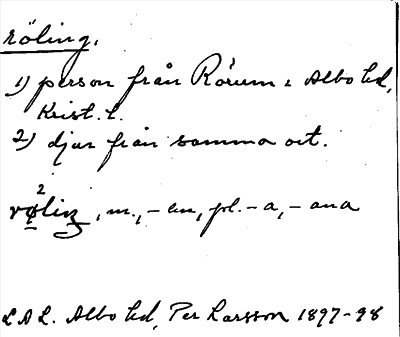 röling.
1) person från Rörum i Albo hd,
Krist. l.
2) djur från samma ort.
2
røling, m., -en, pl. -a, -ana
LAL. Albo hd, Per Larsson 1897-98